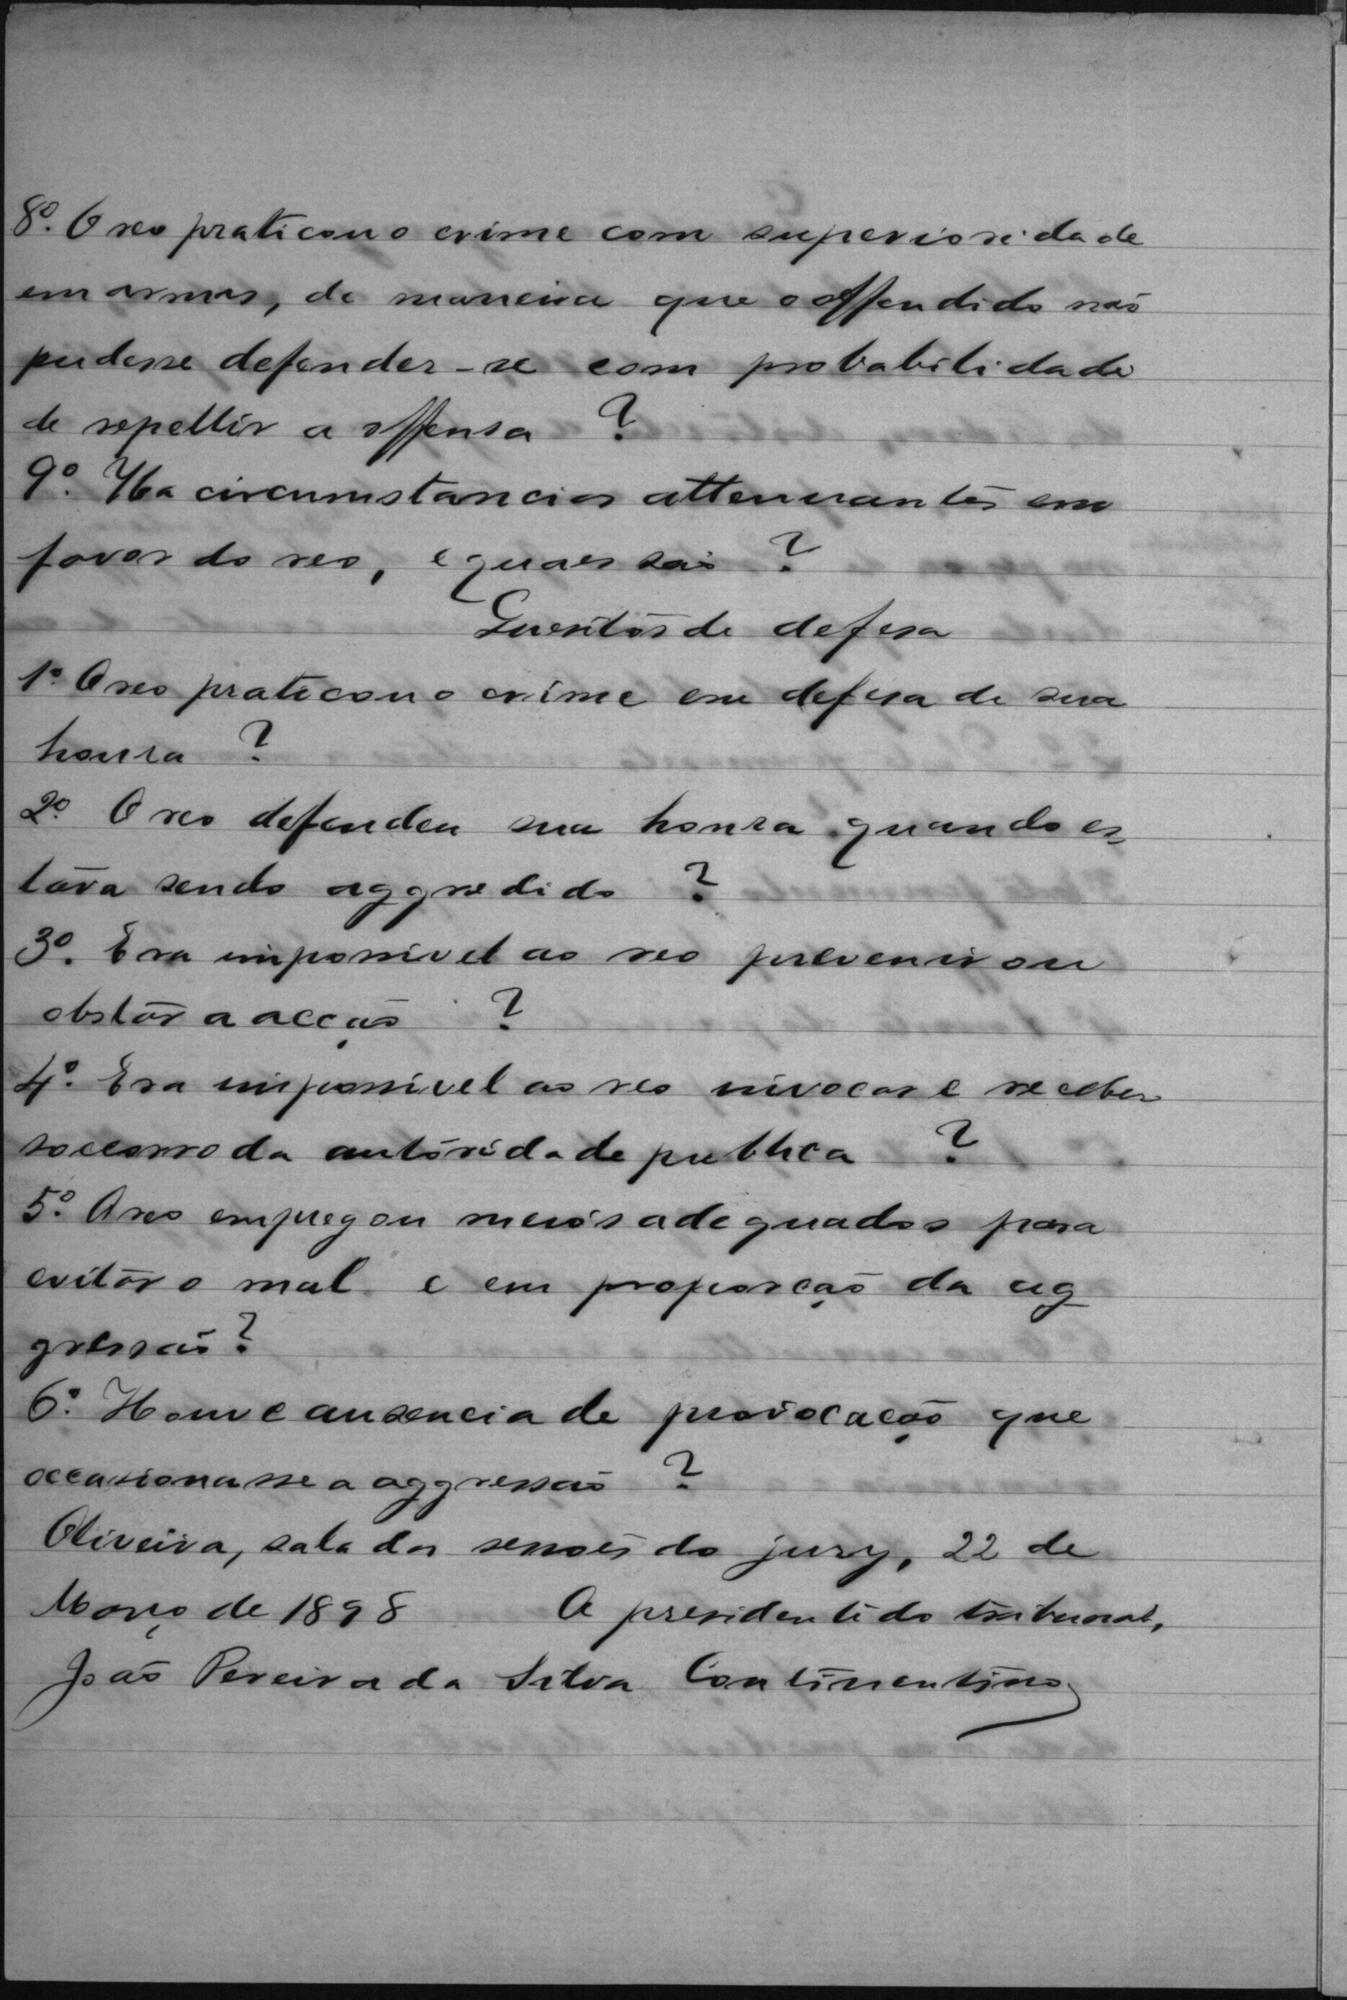 8º. O reo praticou o crime com superioridade
em armas, de maneira que o offendido não
pudesse defender-se com probabilidade
de repellir a offensa ?
9º. Ha circumstancias attenuantes em
favor do reo, e quaes são ?
Quesitos de defesa
1º O reo praticou o crime em defesa de sua
honra ?
2º O reo defendeu sua honra quando es_
tava sendo aggredido ?
3º. Era impossivel ao reo prevenir ou
obstar a acção ?
4º. Era impossivel ao reo invocar e receber
soccorro da autoridade publica ?
5º. O reo empregou meios adequados para
evitar o mal e em proporção da ag
gressão ?
6º. Houve ausencia de provocação que
occasionasse a aggressão ?
Oliveira, sala das sessões do jury, 22 de
Março de 1898 O presidente do tribunal,
João Pereira da Silva Continentino